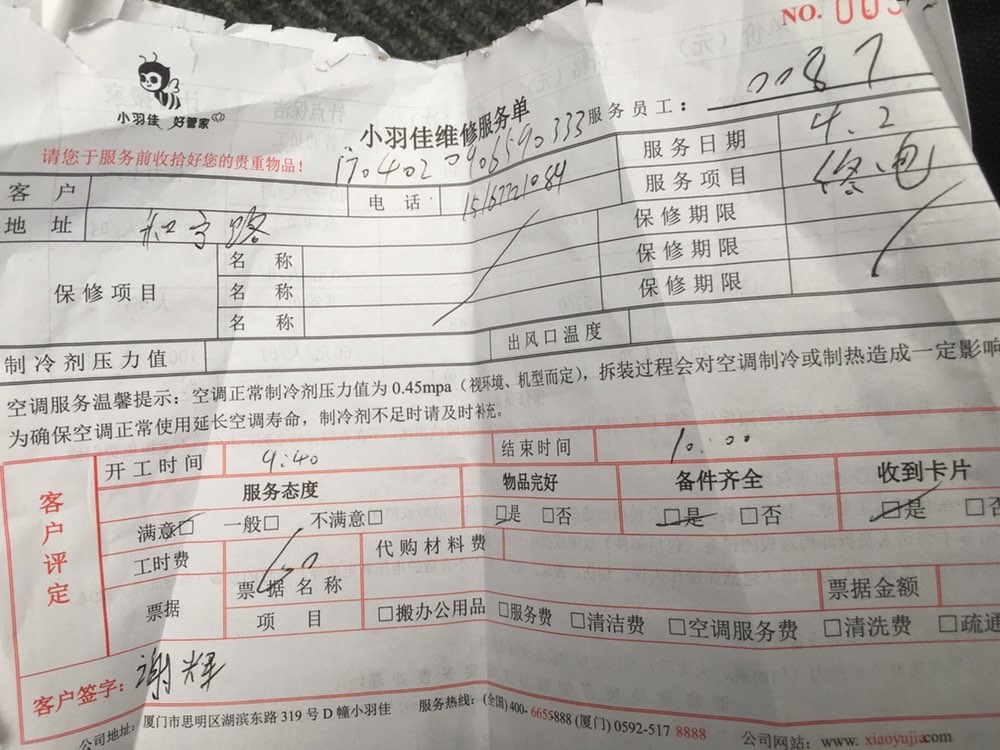 NO. 005
小羽佳 好管家
小羽佳维修服务单
服务员工： 0087
请您于服务前收拾好您的贵重物品！
170402090590333
服务日期 4.2
客 户
电 话 15167721084
服务项目 修电
地 址
保修期限
保修项目
名 称
保修期限
名 称
保修期限
名 称
制冷剂压力值
出风口温度
空调服务温馨提示：空调正常制冷剂压力值为 0.45mpa（视环境、机型而定），拆装过程会对空调制冷或制热造成一定影响
为确保空调正常使用延长空调寿命，制冷剂不足时请及时补充。
客户评定
开工时间 9:40
结束时间 10:00
服务态度
物品完好
备件齐全
收到卡片
满意□ 一般□ 不满意□
□是 □否
□是 □否
□是 □否
工时费 60
代购材料费
票据
票据名称
票据金额
项 目
□搬办公用品 □服务费 □清洁费 □空调服务费 □清洗费 □疏通
客户签字： 谢辉
公司地址：厦门市思明区湖滨东路 319 号 D 幢小羽佳 服务热线：(全国)400-6655888 (厦门) 0592-517 8888 公司网站：www.xiaoyujia.com